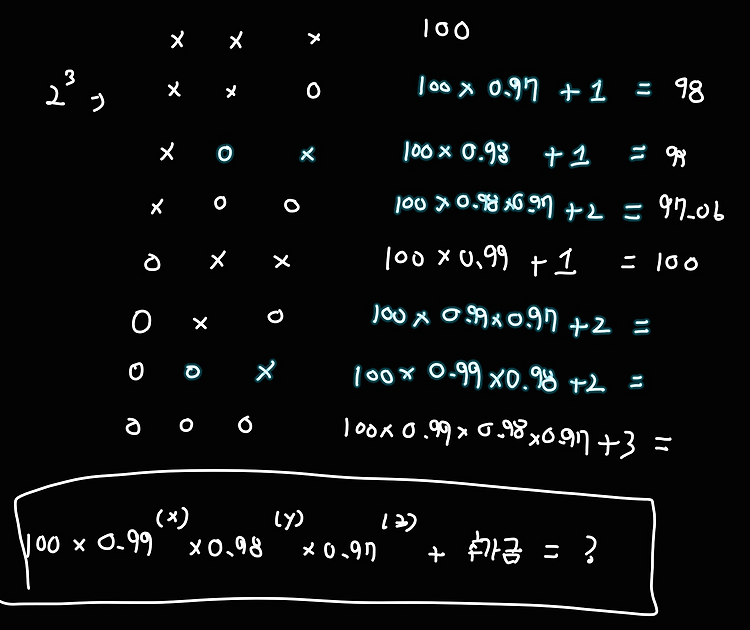 x x x 100
2³ → x x o 100 x 0.97 + 1 = 98
x o x 100 x 0.98 + 1 = 99
x o o 100 x 0.98 x 0.97 + 2 = 97.06
o x x 100 x 0.99 + 1 = 100
o x o 100 x 0.99 x 0.97 + 2 =
o o x 100 x 0.99 x 0.98 + 2 =
o o o 100 x 0.99 x 0.98 x 0.97 + 3 =
100 x 0.99^(x) x 0.98^(y) x 0.97^(z) + 추가금 = ?